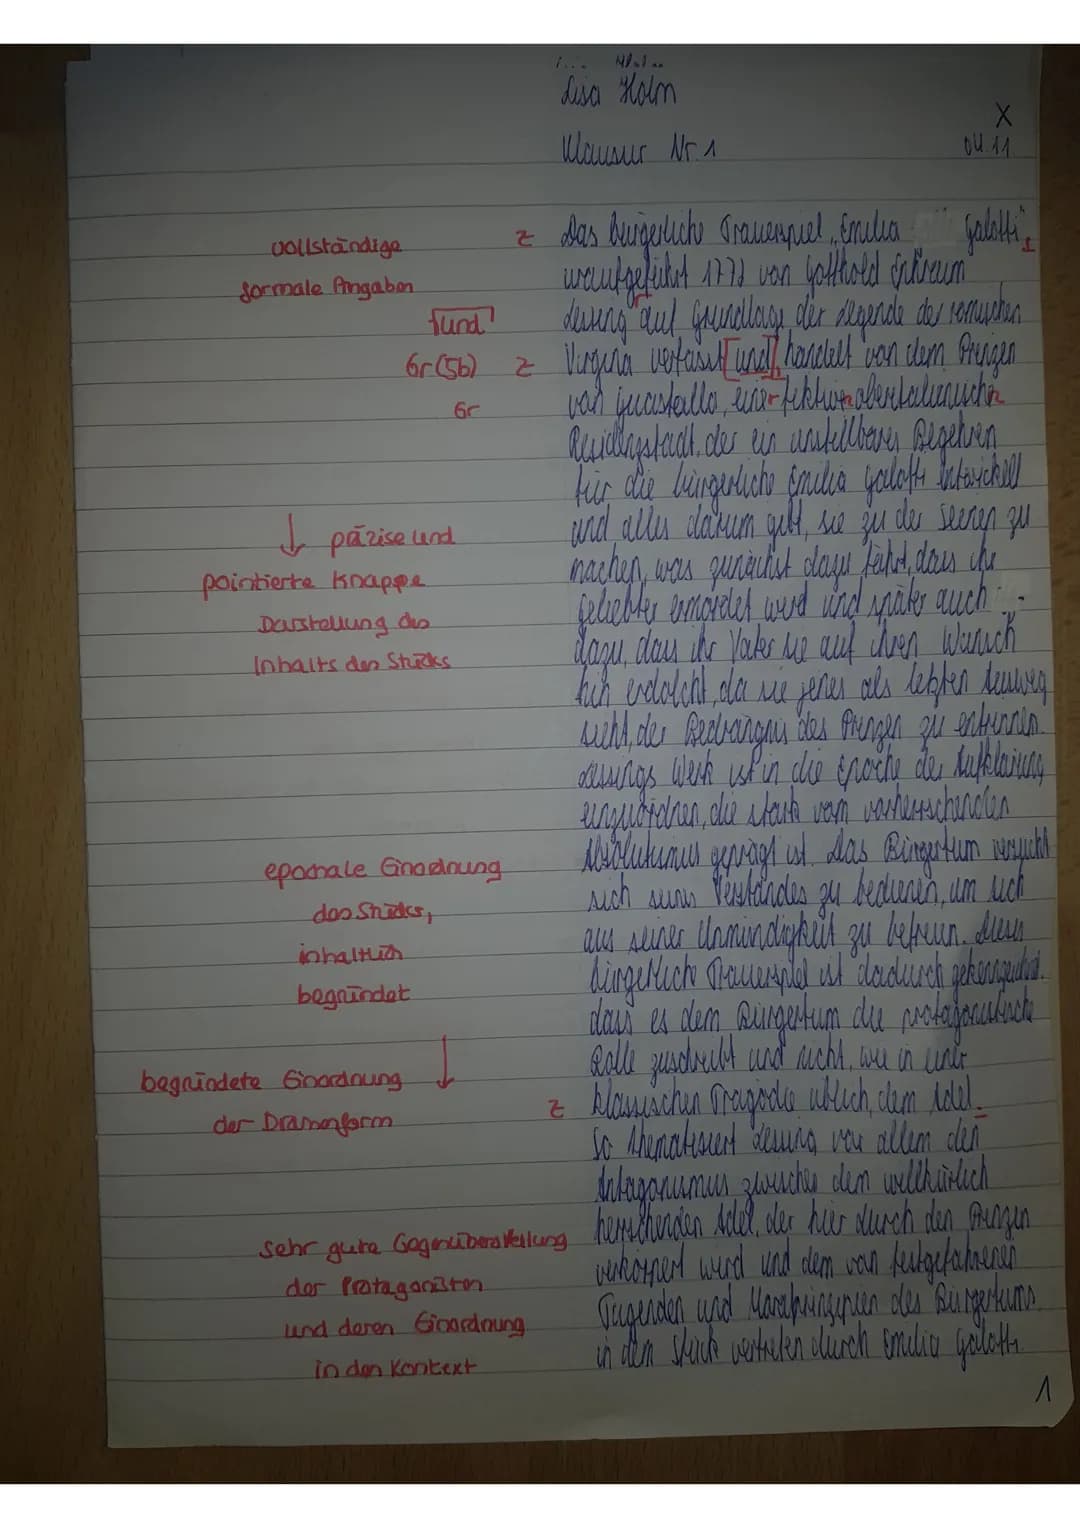 Lisa Holm
X
Klausur Nr. 1
04.11.
vollständige
z
Das bürgerliche Trauerspiel „Emilia Galotti",
formale Angaben
uraufgeführt 1772 von Gotthold Ephraim
[und]
Lessing auf Grundlage der Legende der römischen
Gr(Sb) z
Virginia verfasst [und], handelt von dem Prinzen
Gr
von Guastalla, einer fiktiven oberitalienischen
Residenzstadt, der ein unstillbares Begehren
für die bürgerliche Emilia Galotti entwickelt
und alles darum gibt, sie zu der Seinen zu
↓ präzise und
machen, was zunächst dazu führt, dass ihr
pointierte knappe
Geliebter ermordet wird und später auch
Darstellung des
dazu, dass ihr Vater sie auf ihren Wunsch
Inhalts des Stücks
hin erdolcht, da sie jenes als letzten Ausweg
sieht, der Bedrängnis des Prinzen zu entrinnen.
Lessings Werk ist in die Epoche der Aufklärung
einzuordnen, die stark vom vorherrschenden
epochale Einordnung
Absolutismus geprägt ist. Das Bürgertum versucht
des Stücks,
sich seines Verstandes zu bedienen, um sich
inhaltlich
aus seiner Unmündigkeit zu befreien.
begründet
bürgerliche Trauerspiel ist dadurch gekennzeichnet,
dass es dem Bürgertum die protagonistische
Rolle zuschreibt und nicht, wie in einer
begründete Einordnung ↓
der Dramenform
z
klassischen Tragödie üblich, dem Adel.
So thematisiert Lessing vor allem den
Antagonismus zwischen dem willkürlich
sehr gute Gegenüberstellung
herrschenden Adel, der hier durch den Prinzen
der Protagonisten
verkörpert wird und dem von festgefahrenen
und deren Einordnung
Tugenden und Moralprinzipien des Bürgertums
in den Kontext
in dem Stück vertreten durch Emilia Galotti.
1